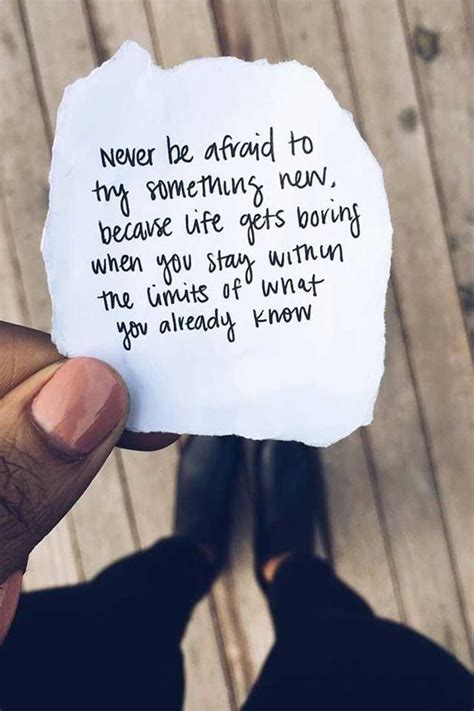 Never be afraid to
try something new,
because life gets boring
when you stay within
the limits of what
you already know